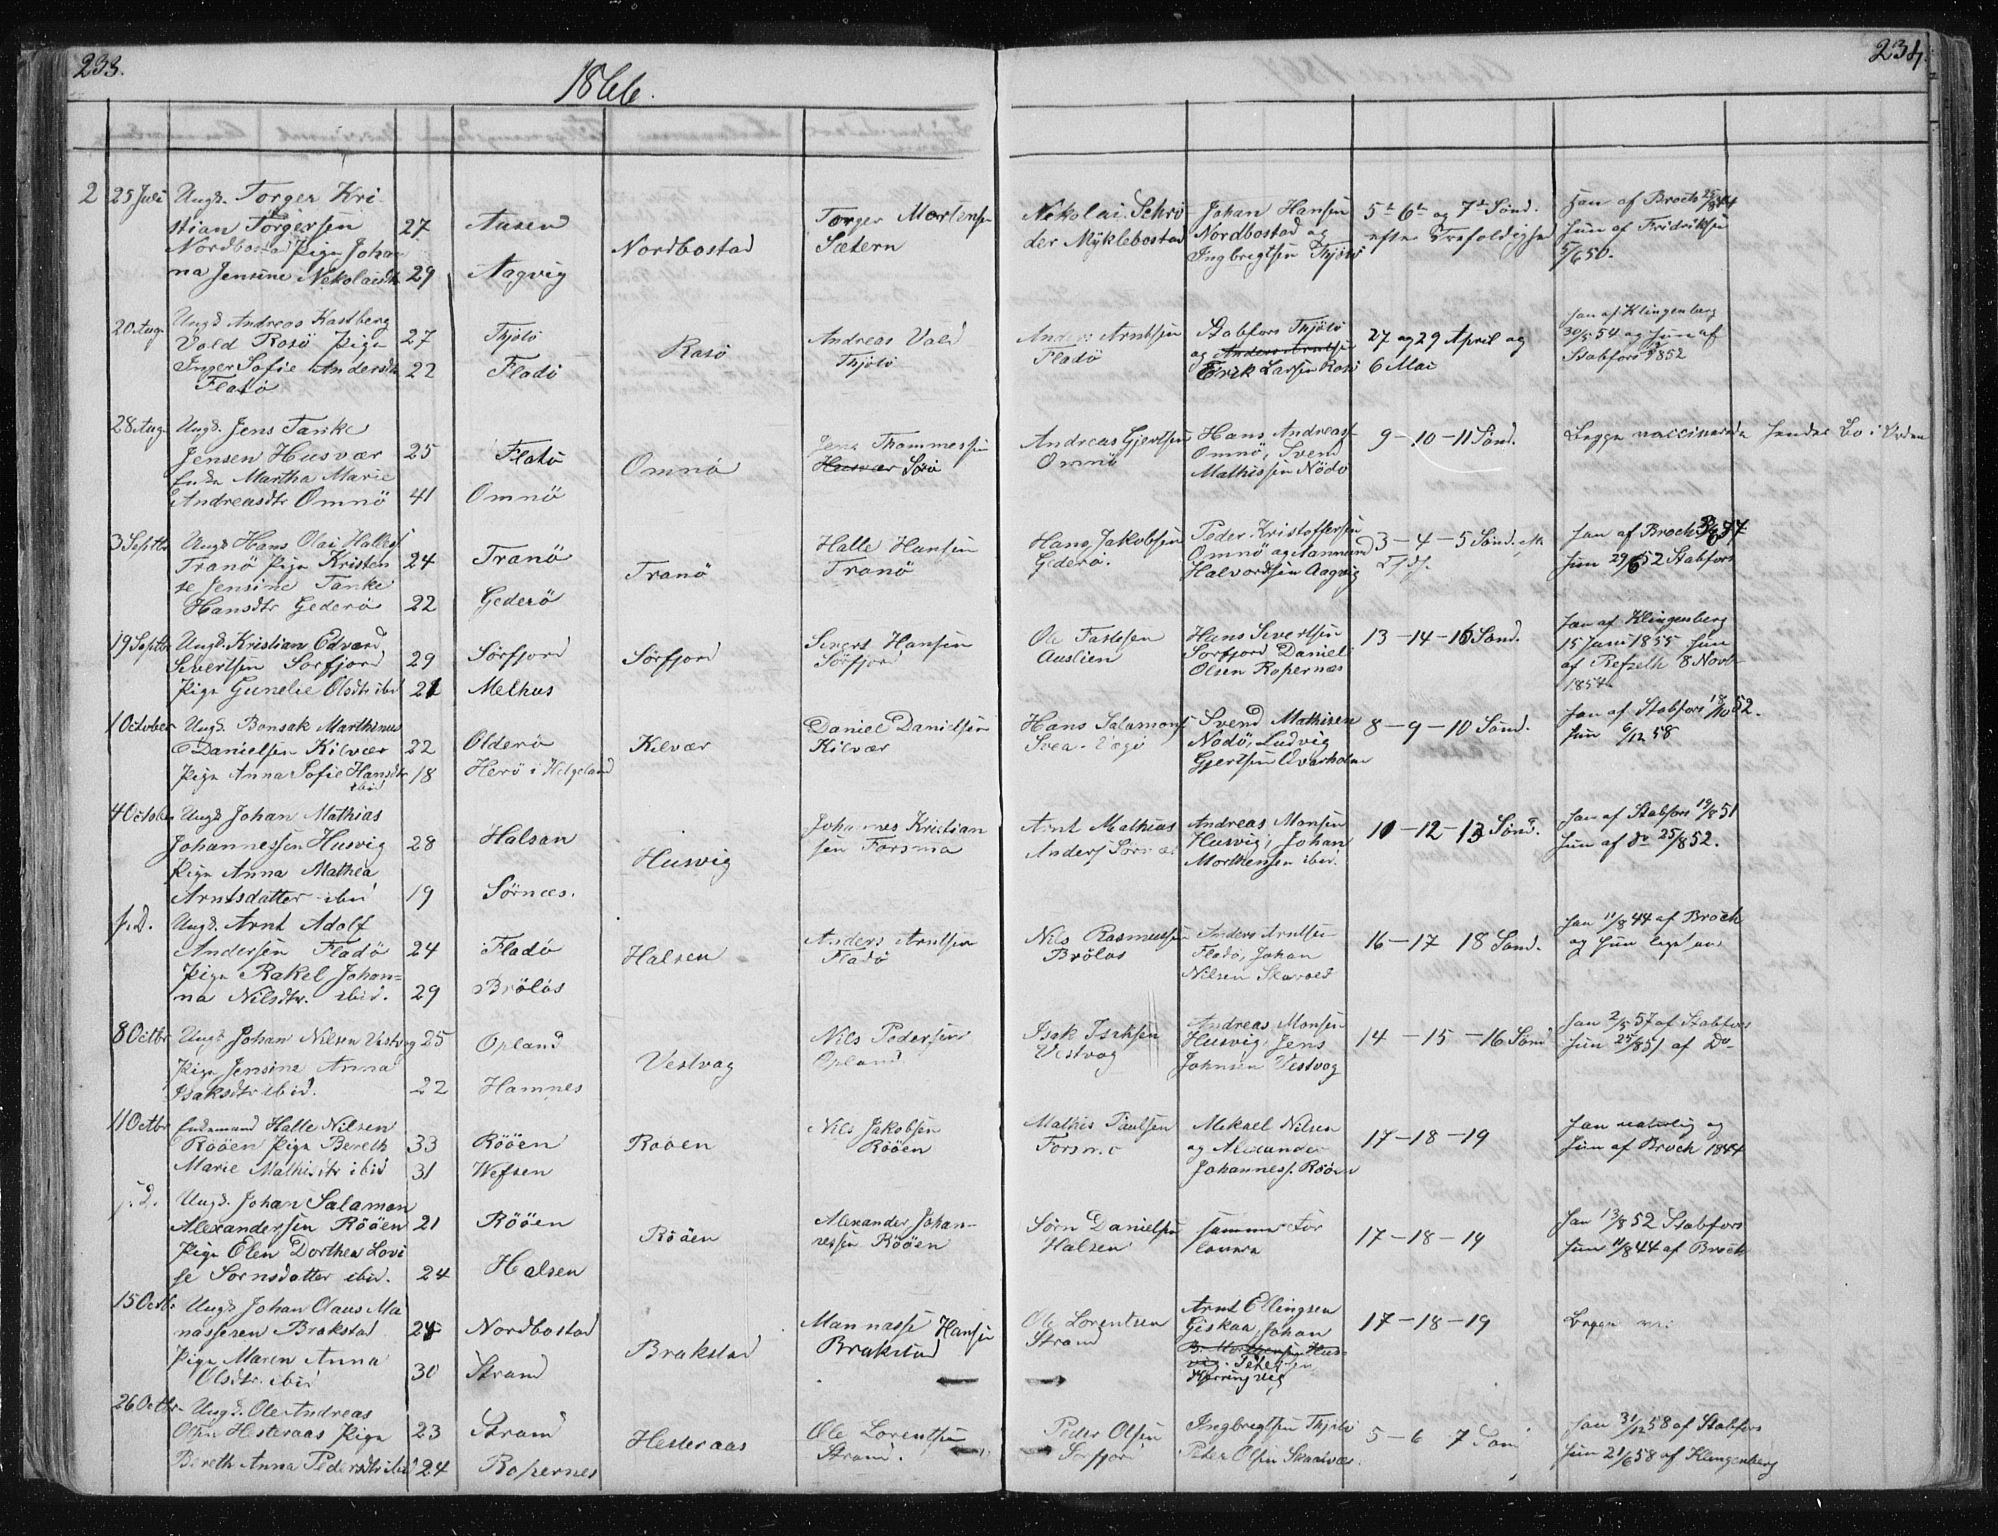 233.
1866.
234.
2 25 Juli Ungk. Torger Kri
stian Torgersen 27 Aasen
Nordbostad Pige Johan
na Jensine Nekolaisdtr 29 Aagvig
Nordbostad
Torger Mortensen
Sætern
Nekolai Schrø
der Myklebostad
Johan Hansen
Nordbostad og
Ingbregtsen Thjøtø
5te 6te og 7de Sønd.
efter Trefoldighed
Han af Broch 25/8 44
Hun af Fridriksen
5/6 50.
20 Aug. Ungk. Andreas Kastberg
Vold Rosø Pige 27 Thjøtø
Inger Sofie Andersdtr 22 Fladø
Fladø
Rosø
Andreas Vold
Thjøtø
Anders Arntsen
Fladø
Stabfors Thjøtø
og Anders Arntsen
Erik Larsen Rosø
27 og 29 April og
6 Mai
Han af Klingenberg
30/5 54 og Hun af
Stabfors 1852
28 Aug. Ungk. Jens Tanke
Jensen Husvær 25 Fladø
Enke Martha Marie
Andreasdtr Omnø 41 Omnø
Omnø
Jens Trommessen
Husvær Sørø
Andreas Gjertsen
Omnø
Hans Andreas
Omnø, Svend
Mathissen Nødø
9 - 10 - 11 Sønd.
Begge vaccinerede
3 Septbr Ungk Hans Olai Halles
Tranø Pige Kristen 24 Tranø
se Jensine Tanke
Hansdtr Gederø 22 Gederø
Tranø
Halle Hansen
Tranø
Hans Jakobsen
Gederø.
Peder Kristoffersen
Omnø og Aanmund
Halvordsen Aagvig
3 - 4 - 5 Sønd.
Han af Broch
Hun 29/6 52 Stabfors
19 Septbr Ungk. Kristian Edvard
Severtsen Sørfjord 29 Sørfjord
Pige Gunelie Olsdtr ibid 21 Melhus
Sørfjord
Severt Hansen
Sørfjord
Ole Taslesen
Auslien
Hans Severtsen
Sørfjord Daniel
Olsen Ropernæs
13 - 14 - 15 Sønd.
Han af Klingenberg
15 Juni 1855 Hun
af Refseth 8 Novb
1854
1 October Ungk. Bonsak Marthinus
Danielsen Kilvær 22 Olderø
Pige Anna Sofie Hansdtr 18 Herø i Helgeland
ibid
Kilvær
Daniel Danielsen
Kilvær
Hans Salamons
Svea-Vago
Svend Mathisen
Nødø, Ludvig
Gjertsen Qvarholm
8 - 9 - 10 Sønd.
Han af Stabfors 18/10 52.
Hun 6/12 58
4 October Ungk Johan Mathias
Johannessen Husvig 28 Halsan
Pige Anna Mathea
Arntsdatter ibid 19 Sørnæs.
Husvig
Johannes Kristian
sen Forsma
Arnt Mathias
Anders Sørnæs
Andreas Monsen
Husvig, Johan
Morthensen ibid.
11 - 12 - 13 Sønd.
Han af Stabfors 19/8 51
Hun af do 25/8 52.
s. D. Ungk. Arnt Adolf
Andersen Fladø 24 Fladø
Pige Rakel Johan=
na Nilsdtr. ibid. 29 Brøløs
Halsen
Anders Arntsen
Fladø
Nils Rasmussen
Brøløs
Anders Arntsen
Fladø, Johan
Nilsen
16 - 17 18 Sønd.
Han 11/8 44 af Broch
og Hun
8 Octbr Ungk. Johan Nilsen Vestvog 25 Opland
Pige Jensine Anna
Isaksdtr ibid. 22 Hamnes
Vestvag
Nils Pedersen
Opland
Isak Isaksen
Vestvog
Andreas Monsen
Husvig, Jens
Johnsen Vestvog
14 - 15 - 16 Sønd
Han 2/5 57 af Stabfors
Hun 25/8 51 af Do
11 Octbr Enkemand Halle Nilsen
Røøen Pige Bereth 33 Røøen
Marie Mathisdtr ibid 31 Wefsen
Røøen
Nils Jakobsen
Røøen
Mathis Paulsen
Forsmo
Mikael Nilsen
og Alexander
Johannes. Røøen
17 - 18 - 19
Han naturlig og
Hun af Broch 1844
s. D. Ungk. Johan Salamon
Alexandersen Røøen 21 Røøen
Pige Elen Dorthea Lovi
se Sørnsdatter ibid. 24 Halsen
Røøen
Alexander Johan-
nessen Røøen
Sørn Danielsen
Halsen
samme For
lovere
17 - 18 - 19
Han 13/8 52 Stabfors
Hun 11/8 44 af Broch
15 Octb. Ungk Johan Olaus Ma
nassesen Brakstad 24 Nordbostad
Pige Maren Anna
Olsdtr. ibid 30 Strand
Brakstad
Mannasse Hansen
Brakstad
Ole Lorentsen
Strand
Arnt Ellingsen
Giskaa, Johan
Morthensen Hus-
vig. Petersen
Hørringvig
17 - 18 - 19
Begge
26 Octbr Ungk. Ole Andreas
Olsen Hesteraas Pige 23 Strand
Bereth Anna Pedersdtr ibid 24 Ropernes
Hesteraas
Ole Lorentsen
Strand.
Peder Olsen
Sørfjord
Ingbregtsen Thjøtø
Peter Olsen Skaalvæs.
5 - 6 7 Sønd
Han 31/12 58 af Stabfors
Hun 21/6 58 af Klingenberg